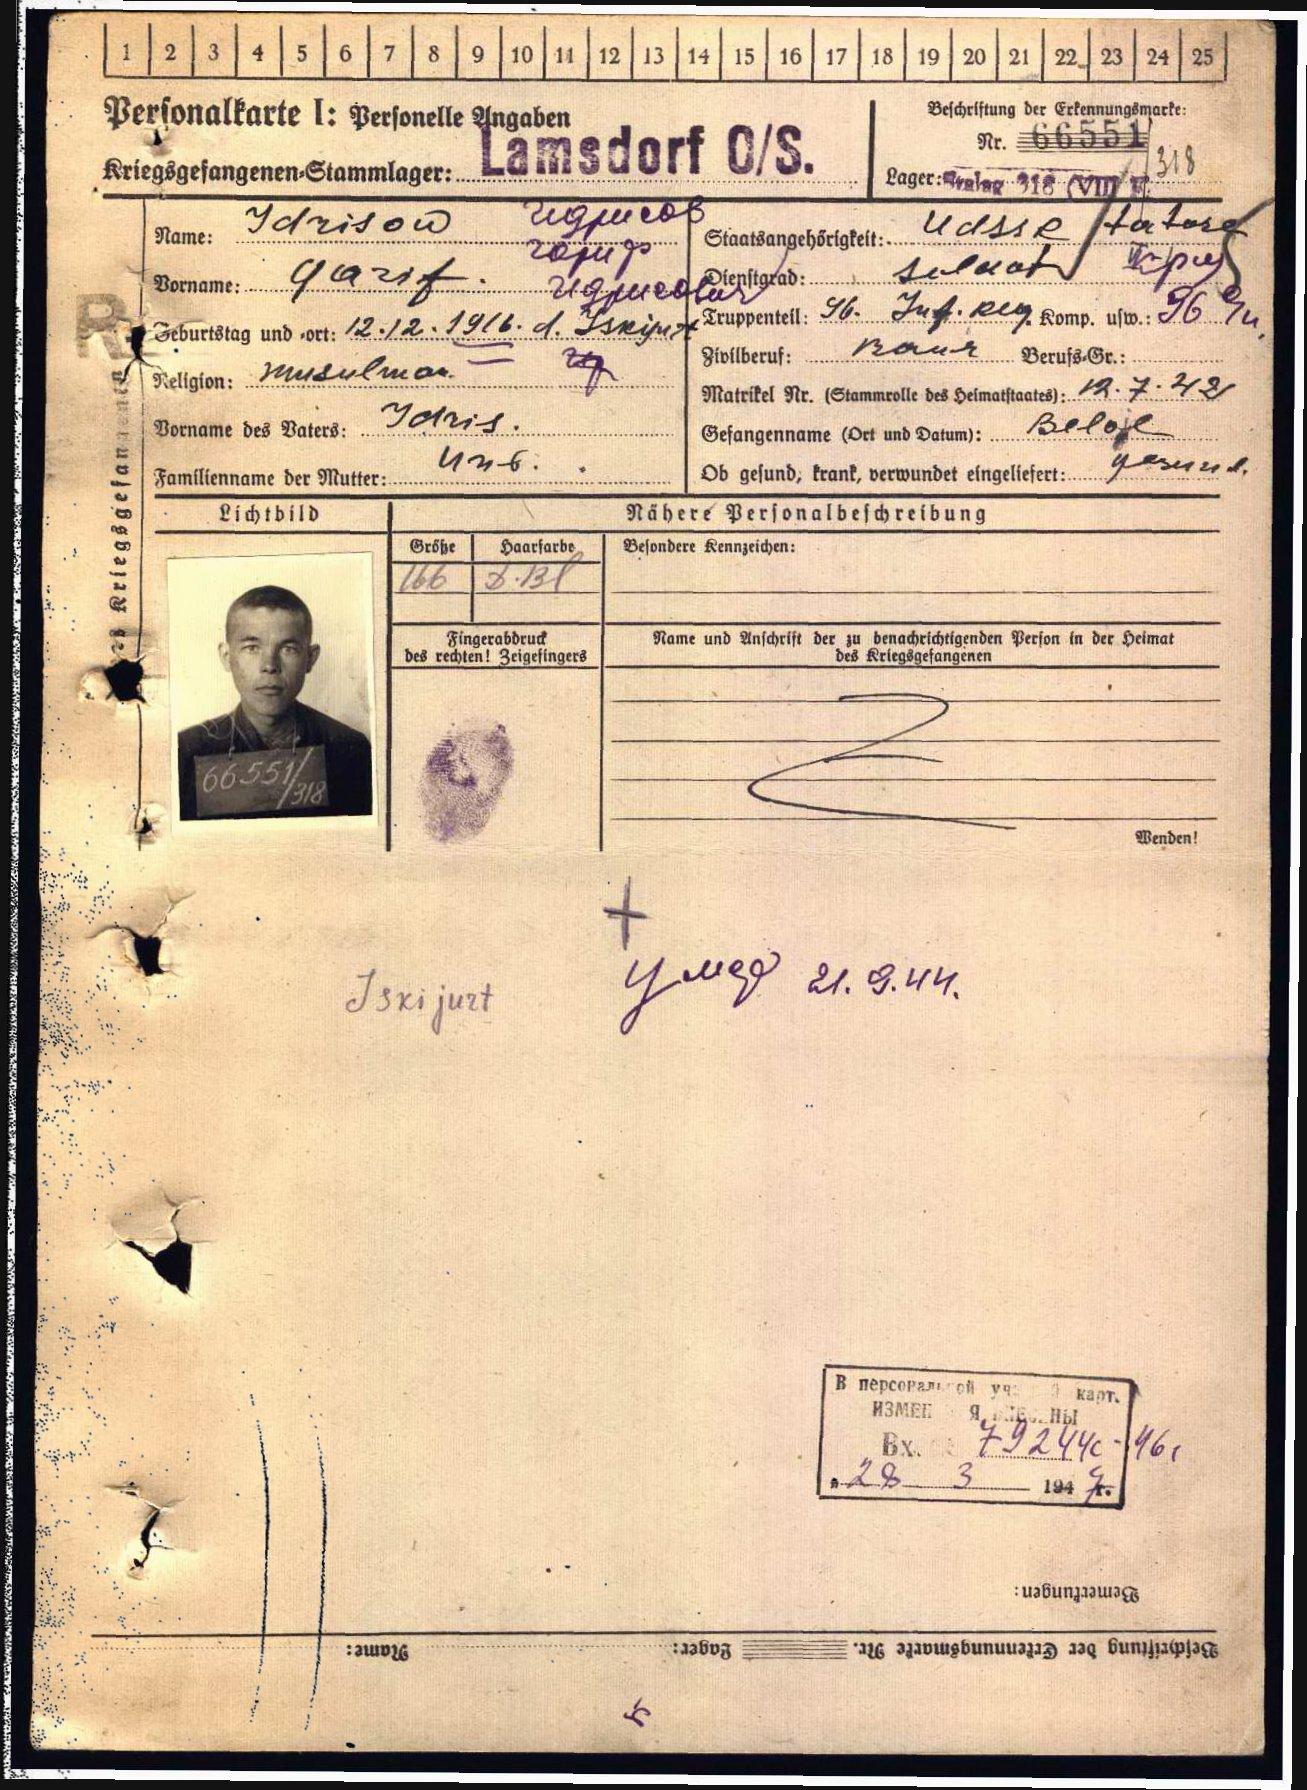 1 2 3 4 5 6 7 8 9 10 11 12 13 14 15 16 17 18 19 20 21 22 23 24 25
Personalkarte I: Personelle Angaben
Kriegsgefangenen-Stammlager: Lamsdorf O/S.
Beschriftung der Erkennungsmarke:
Nr. 66551
318
Lager: Stalag 318 (VIII
Name: Idrisow Идрисов
Гариф
Vorname: Garif. Идрисович
Geburtstag und -ort: 12.12.1916. d. Iskijurt
Religion: musulman
Vorname des Vaters: Idris.
Familienname der Mutter:
Staatsangehörigkeit: UdSSR / tatare
Dienstgrad: Soldat
Truppenteil: 96. Inf. Reg. Komp. usw.: 96
Zivilberuf: Bauer Berufs-Gr.:
Matrikel Nr. (Stammrolle des Heimatstaates): 12.7.42
Gefangenname (Ort und Datum):
Ob gesund, krank, verwundet eingeliefert: gesund.
Kriegsgefangenen
Lichtbild
Nähere Personalbeschreibung
Größe Haarfarbe Besondere Kennzeichen:
166 D.Bl
Fingerabdruck
des rechten! Zeigefingers
Name und Anschrift der zu benachrichtigenden Person in der Heimat
des Kriegsgefangenen
66551/
318
Wenden!
Iskijurt
умер 21.9.44.
В персональной карт.
Вх. 79244с-46г
"28 3 194 г.
Bemerkungen:
Beschriftung der Erkennungsmarke Nr. Lager: Name: